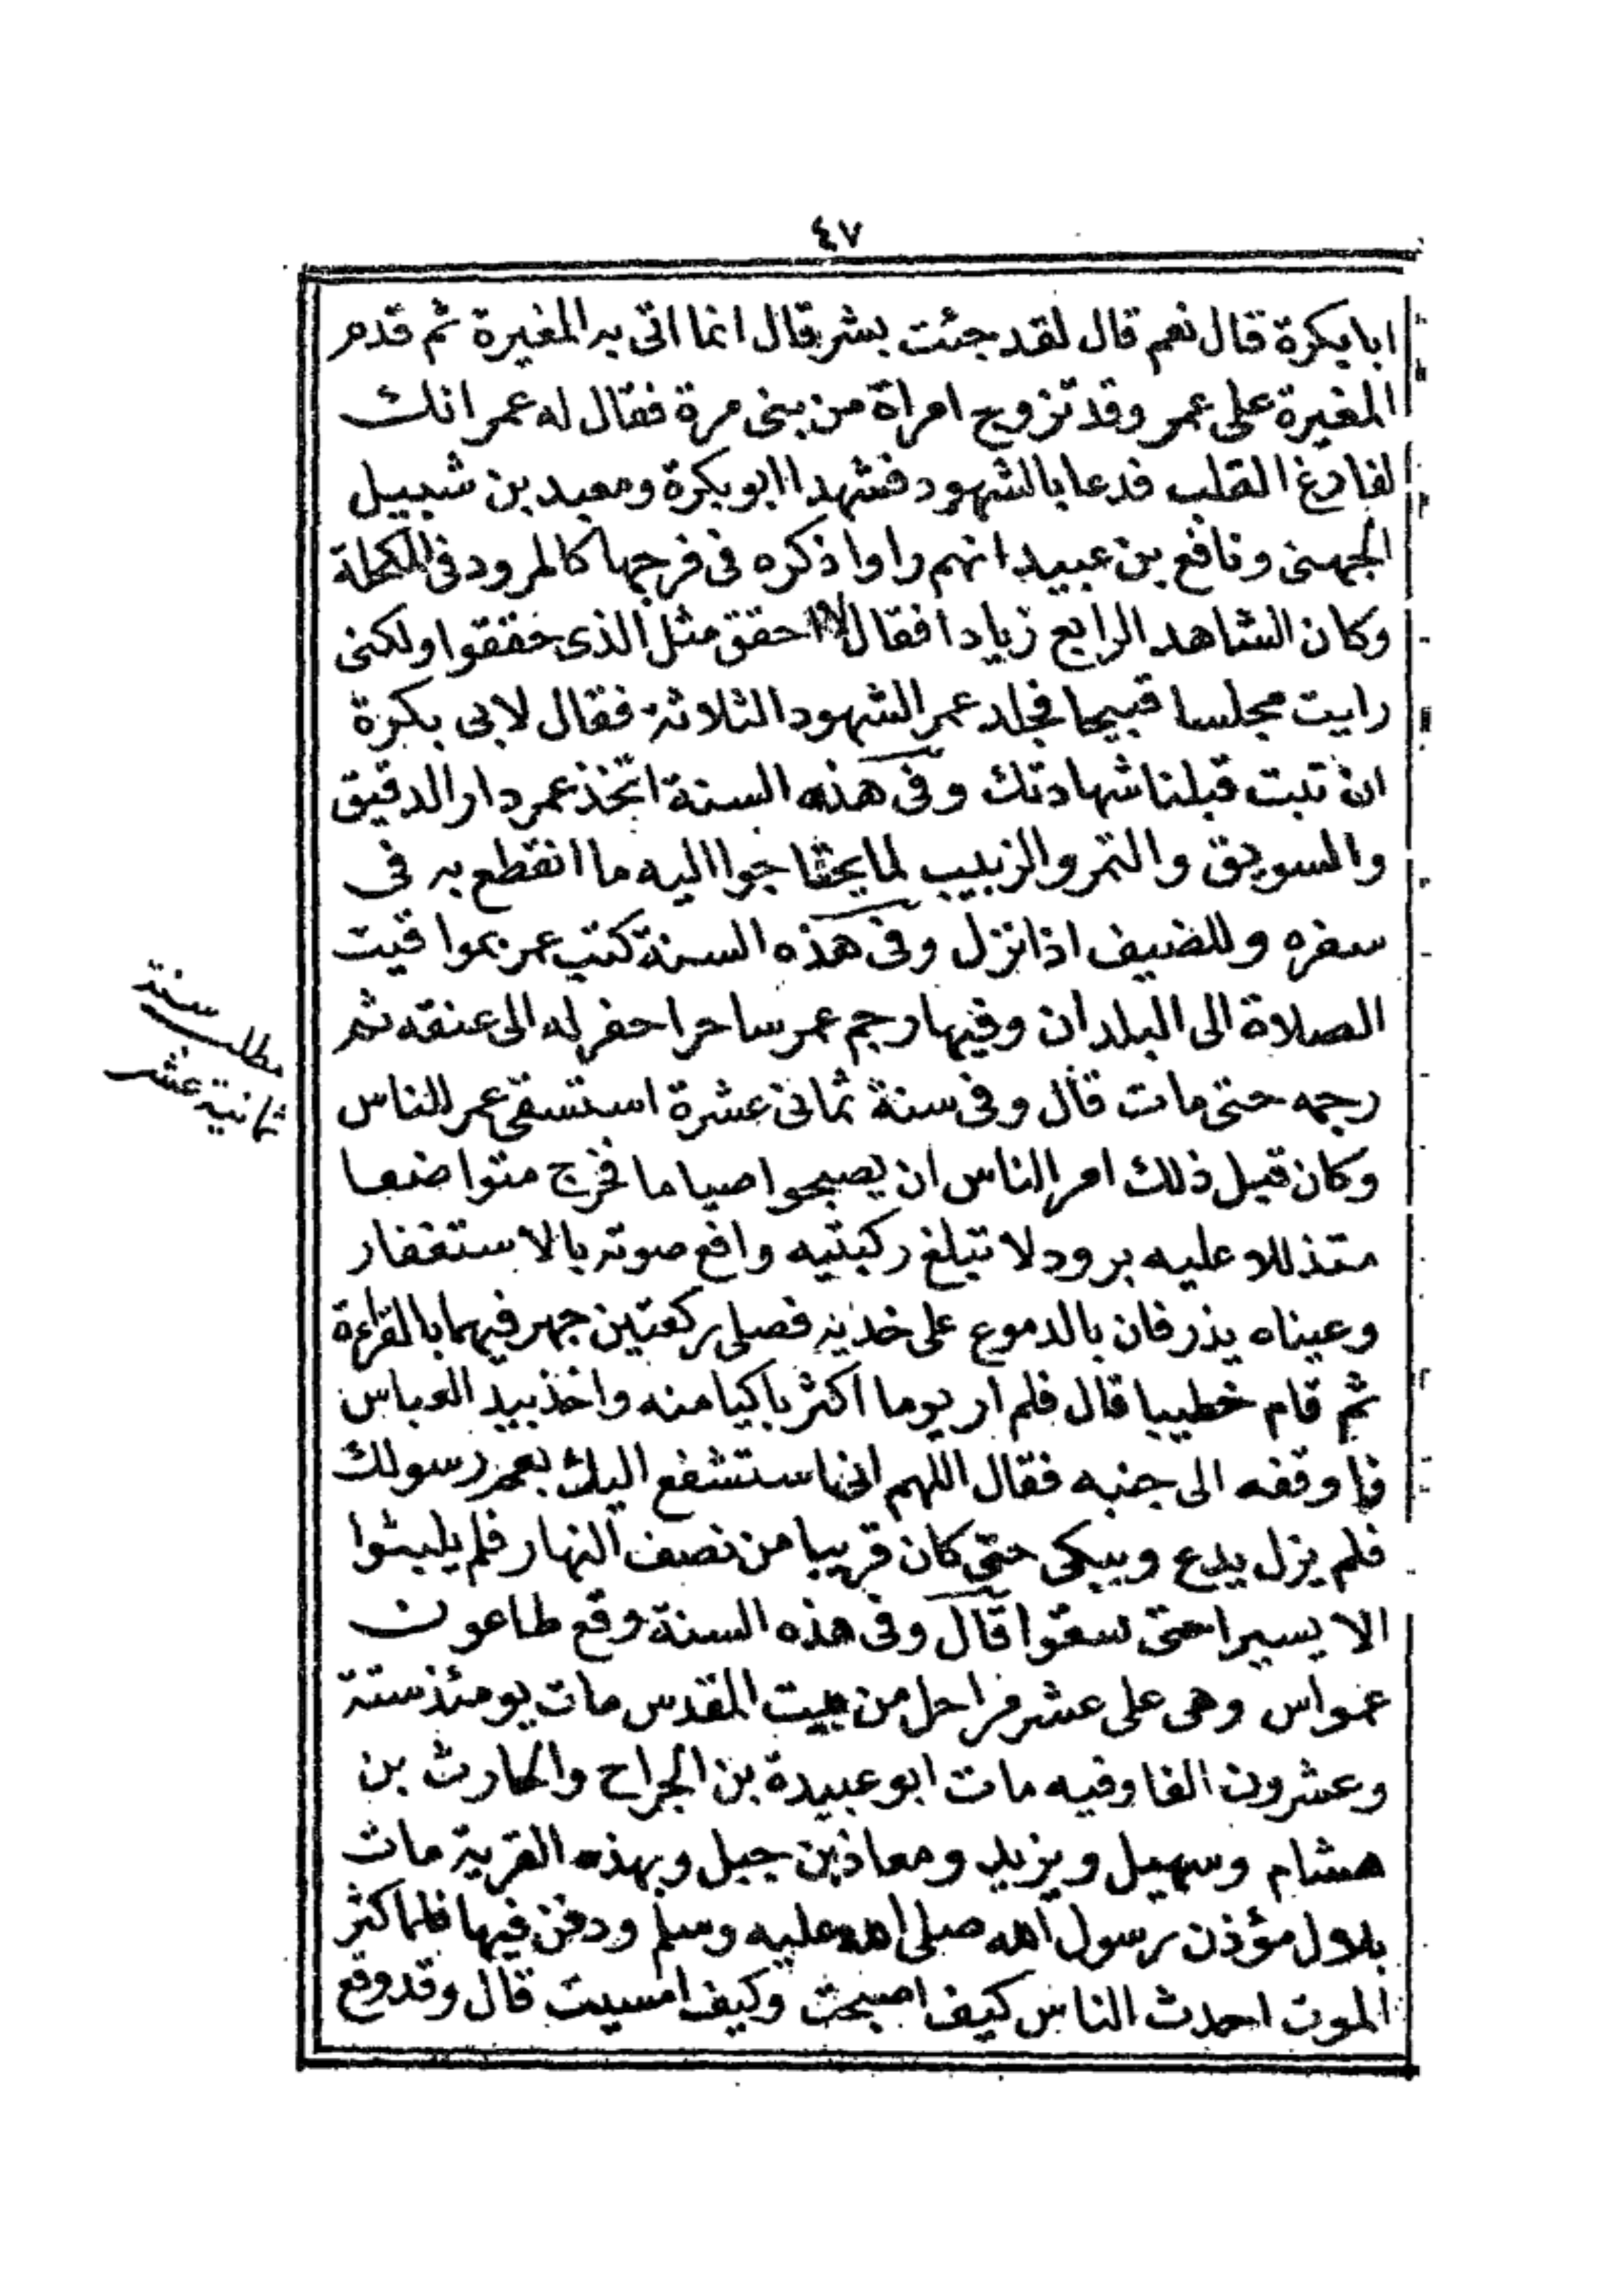 ٤٧
ابا بكرة قال نعم قال لقد جئت بشر قال انما اتى به المغيرة ثم قدم
المغيرة على عمر وقد تزوج امراة من بنى مرة فقال له عمر انك
لفارغ القلب فدعا بالشهود فشهد ابو بكرة ومعبد بن شبيل
الجهنى ونافع بن عبيد انهم راوا ذكره فى فرجها كالمرود فى المكحلة
وكان الشاهد الرابع زيادا فقال لا احقق مثل الذى حققوا ولكنى
رايت مجلسا قبيحا فجلد عمر الشهود الثلاثة فقال لابى بكرة
ان تبت قبلنا شهادتك وفى هذه السنة اتخذ عمر دار الدقيق
والسويق والتمر والزبيب لما يحتاجوا اليه ما انقطع به فى
سفره وللضيف اذا نزل وفى هذه السنة كتب عمر بمواقيت
الصلاة الى البلدان وفيها رجم عمر ساحرا حفر له الى عنقه ثم
رجمه حتى مات قال وفى سنة ثمانى عشرة استسقى عمر للناس
وكان قبل ذلك امر الناس ان يصبحوا صياما فخرج متواضعا
متذللا عليه برود لا تبلغ ركبتيه وافع صوته بالاستغفار
وعيناه يذرفان بالدموع على خديه فصلى ركعتين جهر فيهما بالقراءة
ثم قام خطيبا قال فلم ار يوما اكثر باكيا منه واخذ بيد العباس
فاوقفه الى جنبه فقال اللهم انا نستشفع اليك بعم رسولك
فلم يزل يدع ويبكى حتى كان قريبا من نصف النهار فلم يلبثوا
الا يسيرا حتى سقوا قال وفى هذه السنة وقع طاعون
عمواس وهى على عشر مراحل من بيت المقدس مات يومئذ ستة
وعشرون الفا وفيه مات ابو عبيدة بن الجراح والحارث بن
هشام وسهيل ويزيد ومعاذ بن جبل وبهذه القرية مات
بلال مؤذن رسول الله صلى الله عليه وسلم ودفن فيها فلما كثر
الموت احدث الناس كيف اصبحت وكيف امسيت قال وقد وقع
مطلب سنة
ثمانية عشر